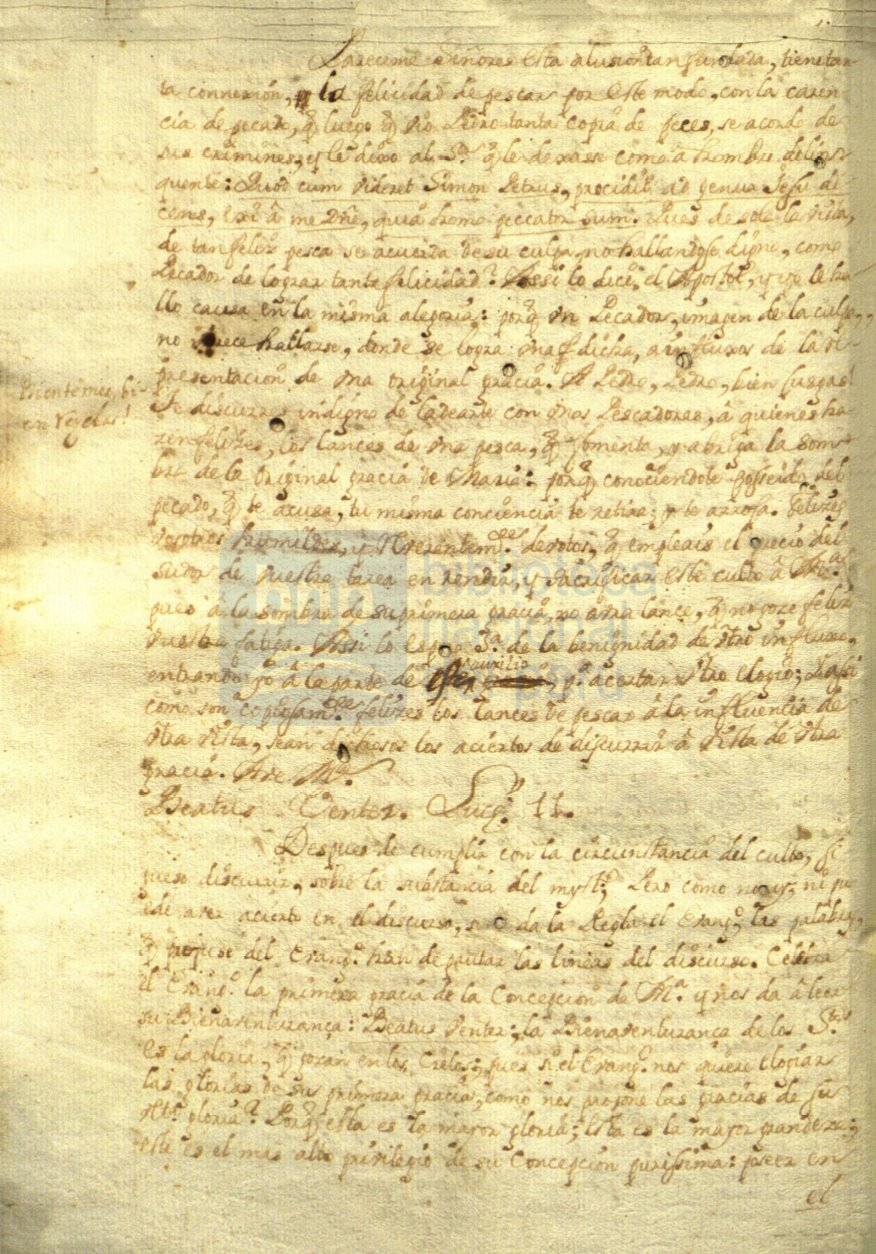 Pareceme Señores esta alusion tan fundada, tiene tan-
ta connexion, la felicidad de pescar por este modo, con la caren-
cia de pecar, q̃ luego q̃ vio Pedro tanta copia de peces, se acordo de
sus crimines, y le dixo al S.r q̃ le dexasse como à hombre delin-
quente: Quod cum videret Simon Petrus, procidit ad genua Jesu di-
cens, exi à me Dñe, quia homo peccator sum. Pues de solo la vista,
de tan feliz pesca se acuerda de su culpa, no hallandose digno, como
Pecador de lograr tanta felicidad? Assi lo dice, el Apostol, y yo le ha-
llo causa en la misma alegoria: porq̃ un Pecador, imagen de la culpa,
no hallarse, donde se logra una dicha, a influxos de la re-
presentacion de una original gracia. A Pedro, Pedro, bien juzgas!
Te discurres indigno de ladearte con unos Pescadores, à quienes ha-
zen felizes, los lances de una pesca, q̃ fomenta, y abriga la som-
bra de la original gracia de Maria: porq̃ conociendote posseido del
pecado, q̃ te acusa, tu misma conciencia te retira: y te arroja. Felizes
vosotros humildes, y reverentem.te devotos, q̃ empleais el precio del
sudor de vuestra tarea en rendir, y sacrificar este culto à M.a
pues à la sombra de su primera gracia, no avra lance, q̃ no goze feliz
vuestra fatiga. Assi lo espero S.a de la benignidad de vtro influxo,
entrando yo à la parte de este auxilio p.a acertar vtro elogio; Y assi
como son copiosam.te felizes los lances de pescar à la influencia de
vtra vista, sean dichosos los aciertos de discurrir à vista de vtra
gracia. Ave M.a
Beatus Venter. Luc. 11.
Despues de cumplir con la circunstancia del culto,
discurrir, sobre la substancia del myst.o Pero como no ay, ni pu-
ede aver acierto en el discurso, si no da la Regla el Evang.o las palabras,
q̃ propuse del Evang.o han de pautar las lineas del discurso. Celebra
el Evang.o la primera gracia de la Concepcion de M.a y nos da à leer
su Bienaventurança: Beatus venter; la Bienaventurança de los S.tos
es la gloria, q̃ gozan en los Cielos; pues si el Evang.o nos quiere elogiar
las glorias de su primera gracia, como nos propone las gracias de su
gloria? Porq̃ esta es la mayor gloria; esta es la mayor grandeza;
este es el mas alto privilegio de su Concepcion purissima: poseer en
el